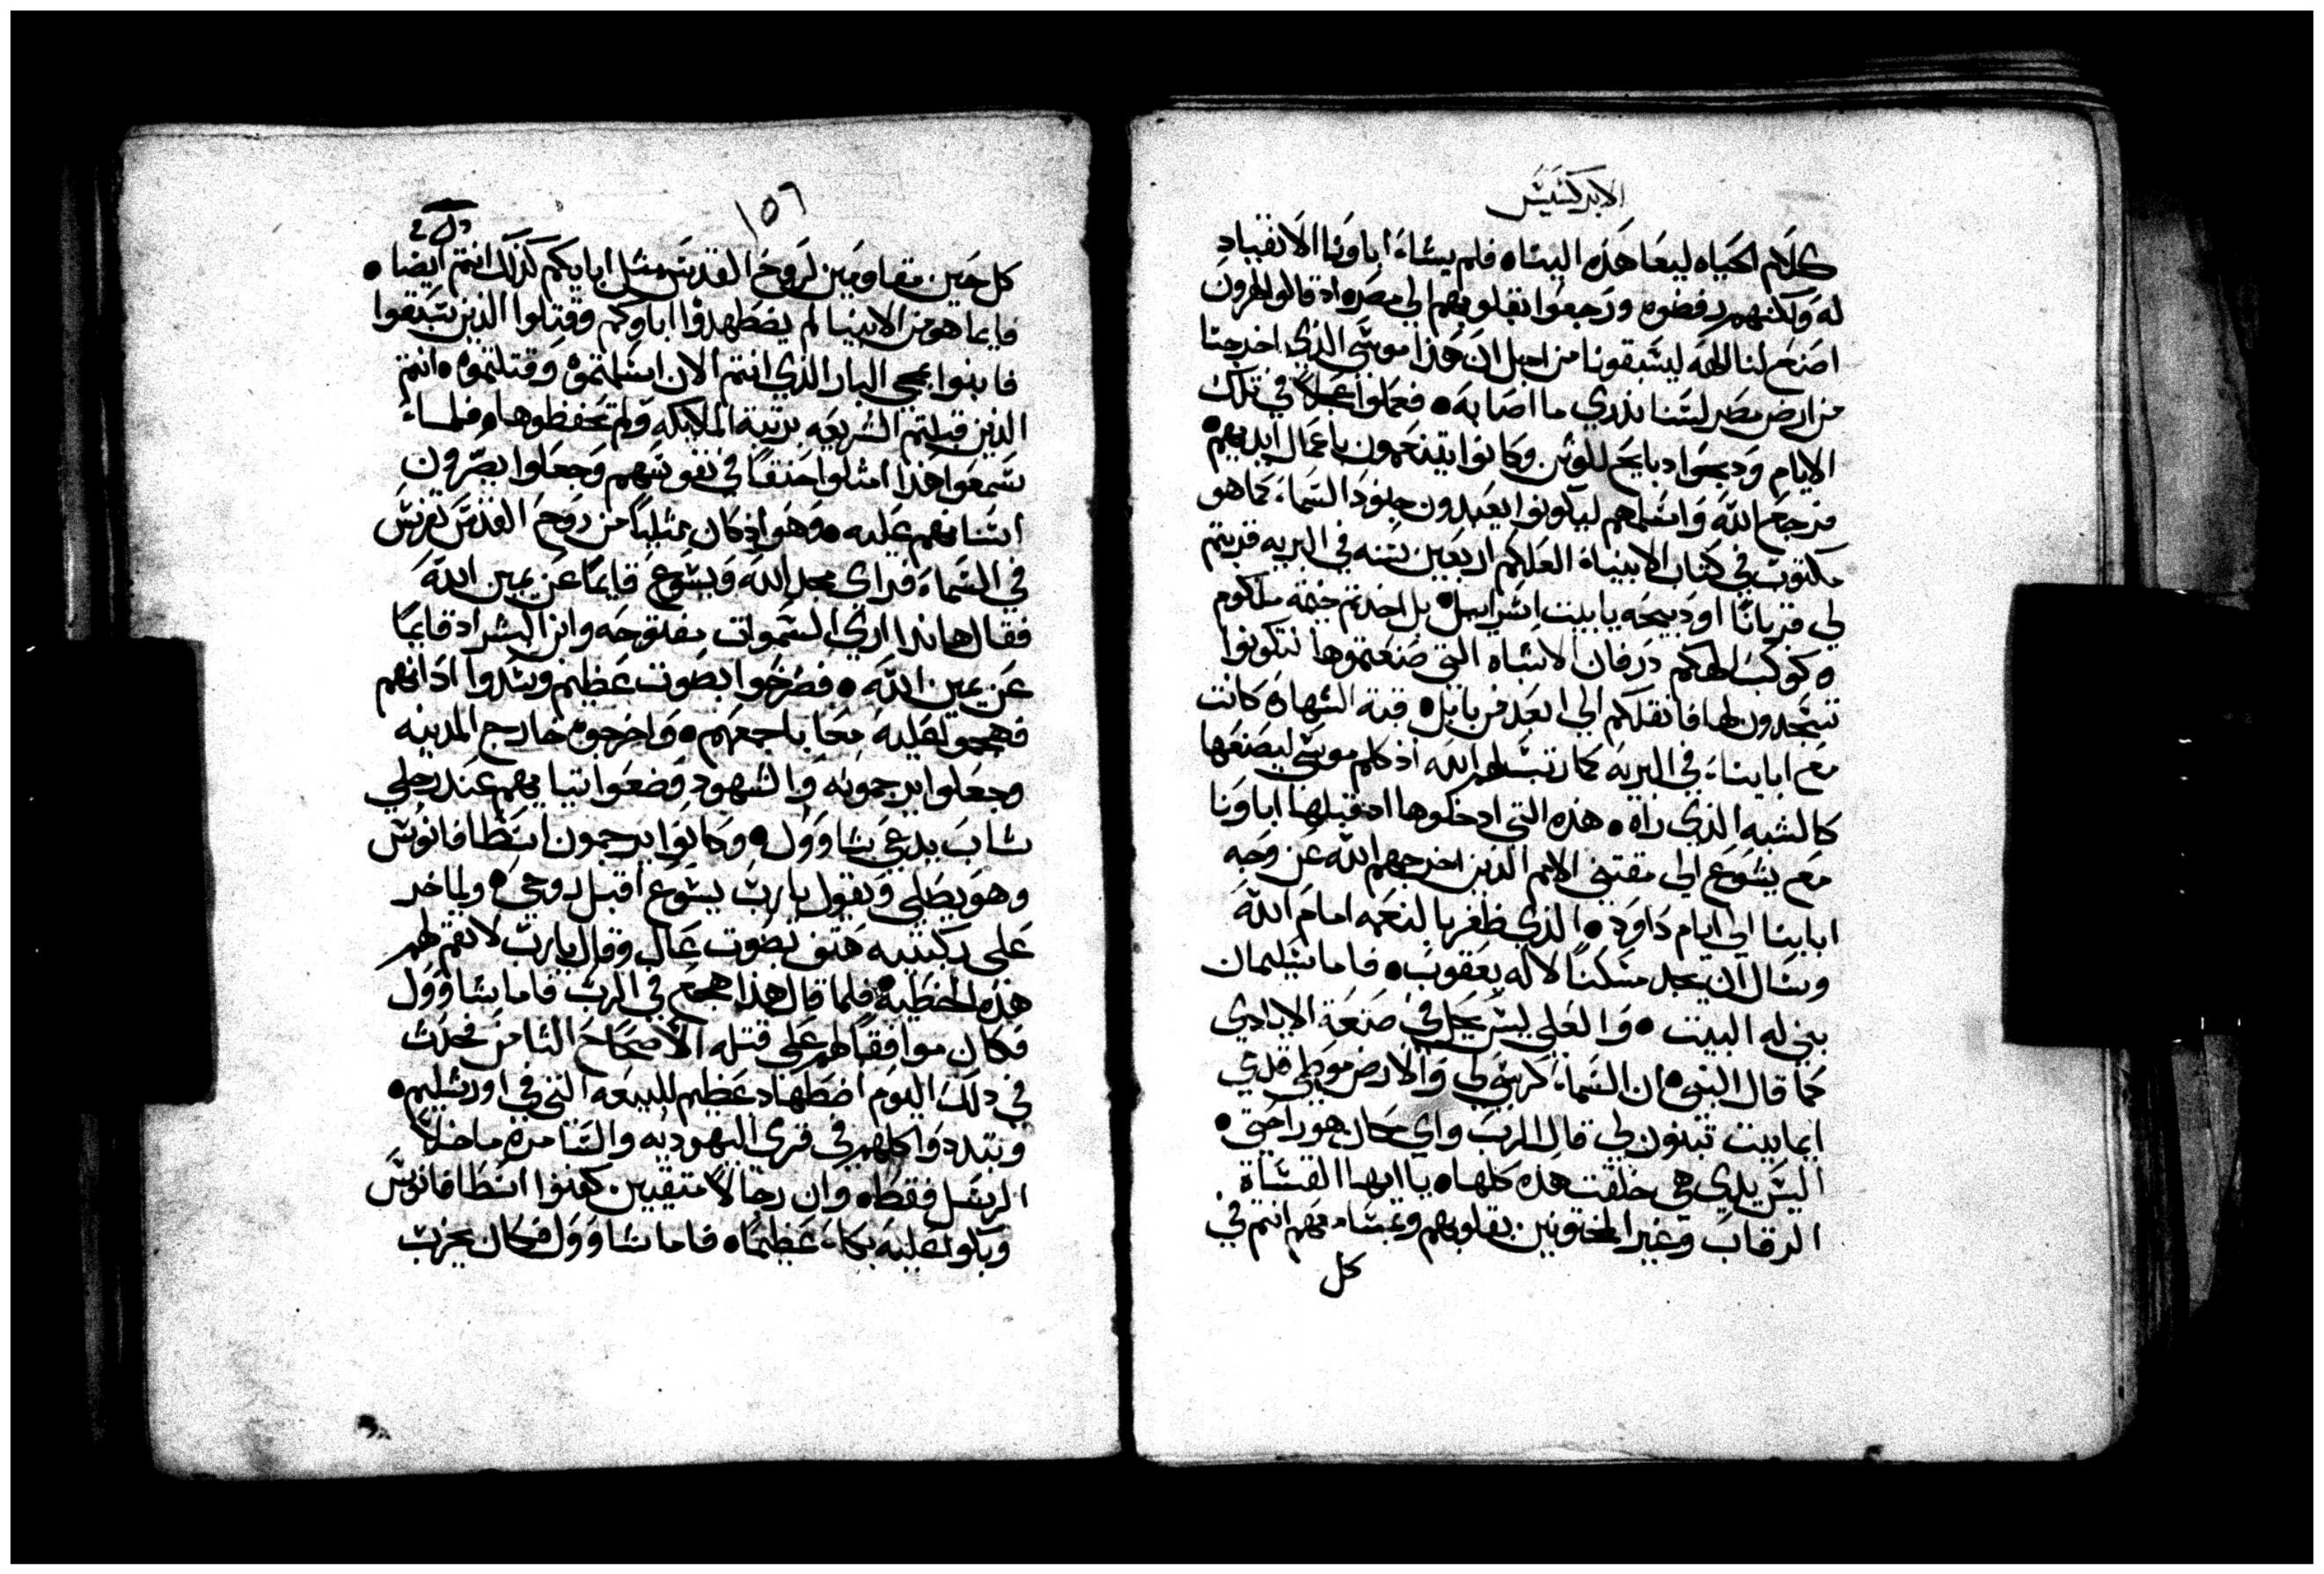 الابركسيس
كلام الحياه ليعطا هذه الينا ه فلم يشاء اباونا الانقياد
له ولكنهم رفضوه ورجعوا بقلوبهم الى مصر ه اذ قالوا لهرون
اصنع لنا الهه ليسبقونا من اجل ان هذا موسى الذي اخرجنا
من ارض مصر لسنا ندري ما اصابه ه فعملوا عجلا في تلك
الايام ودبحوا دبايح للوثن وكانوا يتنعمون باعمال ايديهم
فرجع الله واسلمهم ليكونوا يعبدون جنود السماء كما هو
مكتوب في كتاب الانبياء العلكم اربعين سنه في البريه قربتم
لي قربانا او دبيحه يا بيت اسراييل ه بل اخدتم خيمه ملكوم
ه كوكب الهكم درفان الاشباه التي صنعتموها لتكونوا
تسجدون لها فانقلكم الى ابعد من بابل ه قبة الشهاده كانت
مع اباينا في البريه كما رتب لهم الله اذ كلم موسى ليصنعها
كالشبه الذي راه ه هذه التي ادخلوها اذ قبلها اباونا
مع يشوع الى مقتنى الامم الذين اخرجهم الله عن وجه
اباينا الى ايام داود ه الذي ظفر بالنعمه امام الله
وسال ان يجد مسكنا لاله يعقوب ه فاما سليمان
بنى له البيت ه والعلي ليس يحل في صنعة الايادي
كما قال النبي ه ان السماء كرسي لي والارض موطي قدمي
ايما بيت تبنون لي قال الرب واي مكان هو راحتي ه
اليس يدي هي خلقت هذه كلها ه يا ايها القساة
الرقاب وغير المختونين بقلوبهم وبمسامعهم انتم في
كل
١٥٦
كل حين مقاومين لروح القدس مثل ابايكم كذلك انتم ايضا ه
فايما هو من الانبيا لم يضطهدوا اباوكم وقتلوا الذين سبقوا
فابنوا بمجي البار الذي انتم الان اسلمتموه وقتلتموه ه انتم
الذين قبلتم الشريعه برتبة الملايكه ولم تحفظوها ه فلما
سمعوا هذا امتلوا حنقا في نفوسهم وجعلوا يصرون
اسنانهم عليه ه وهو اذ كان ممتليا من روح القدس تفرس
في السماء فراى مجد الله ويسوع قايما عن يمين الله
فقال هاندا ارى السموات مفتوحه وابن البشر اد قايما
عن يمين الله ه فصرخوا بصوت عظيم وسدوا اذانهم
فهجموا عليه معا باجمعهم ه واخرجوه خارج المدينه
وجعلوا يرجمونه والشهود وضعوا تيابهم عند رجلي
شاب يدعى شاوول ه وكانوا يرجمون اسطافانوس
وهو يصلي ويقول يا رب يسوع اقبل روحي ه ولما خر
على ركبتيه هتف بصوت عال وقال يا رب لا تقم لهم
هذه الخطيه ه فلما قال هذا هجع في الرب فاما شاوول
فكان موافقا لهم على قتله الاصحاح الثامن فحدث
في ذلك اليوم اضطهاد عظيم للبيعه التي في اورشليم ه
وتبددوا كلهم في قرى اليهوديه والسامره ما خلا
الرسل فقط ه وان رجالا متقيين كفنوا اسطافانوس
وبكوا عليه بكاء عظيما ه فاما شاوول فكان يخرب